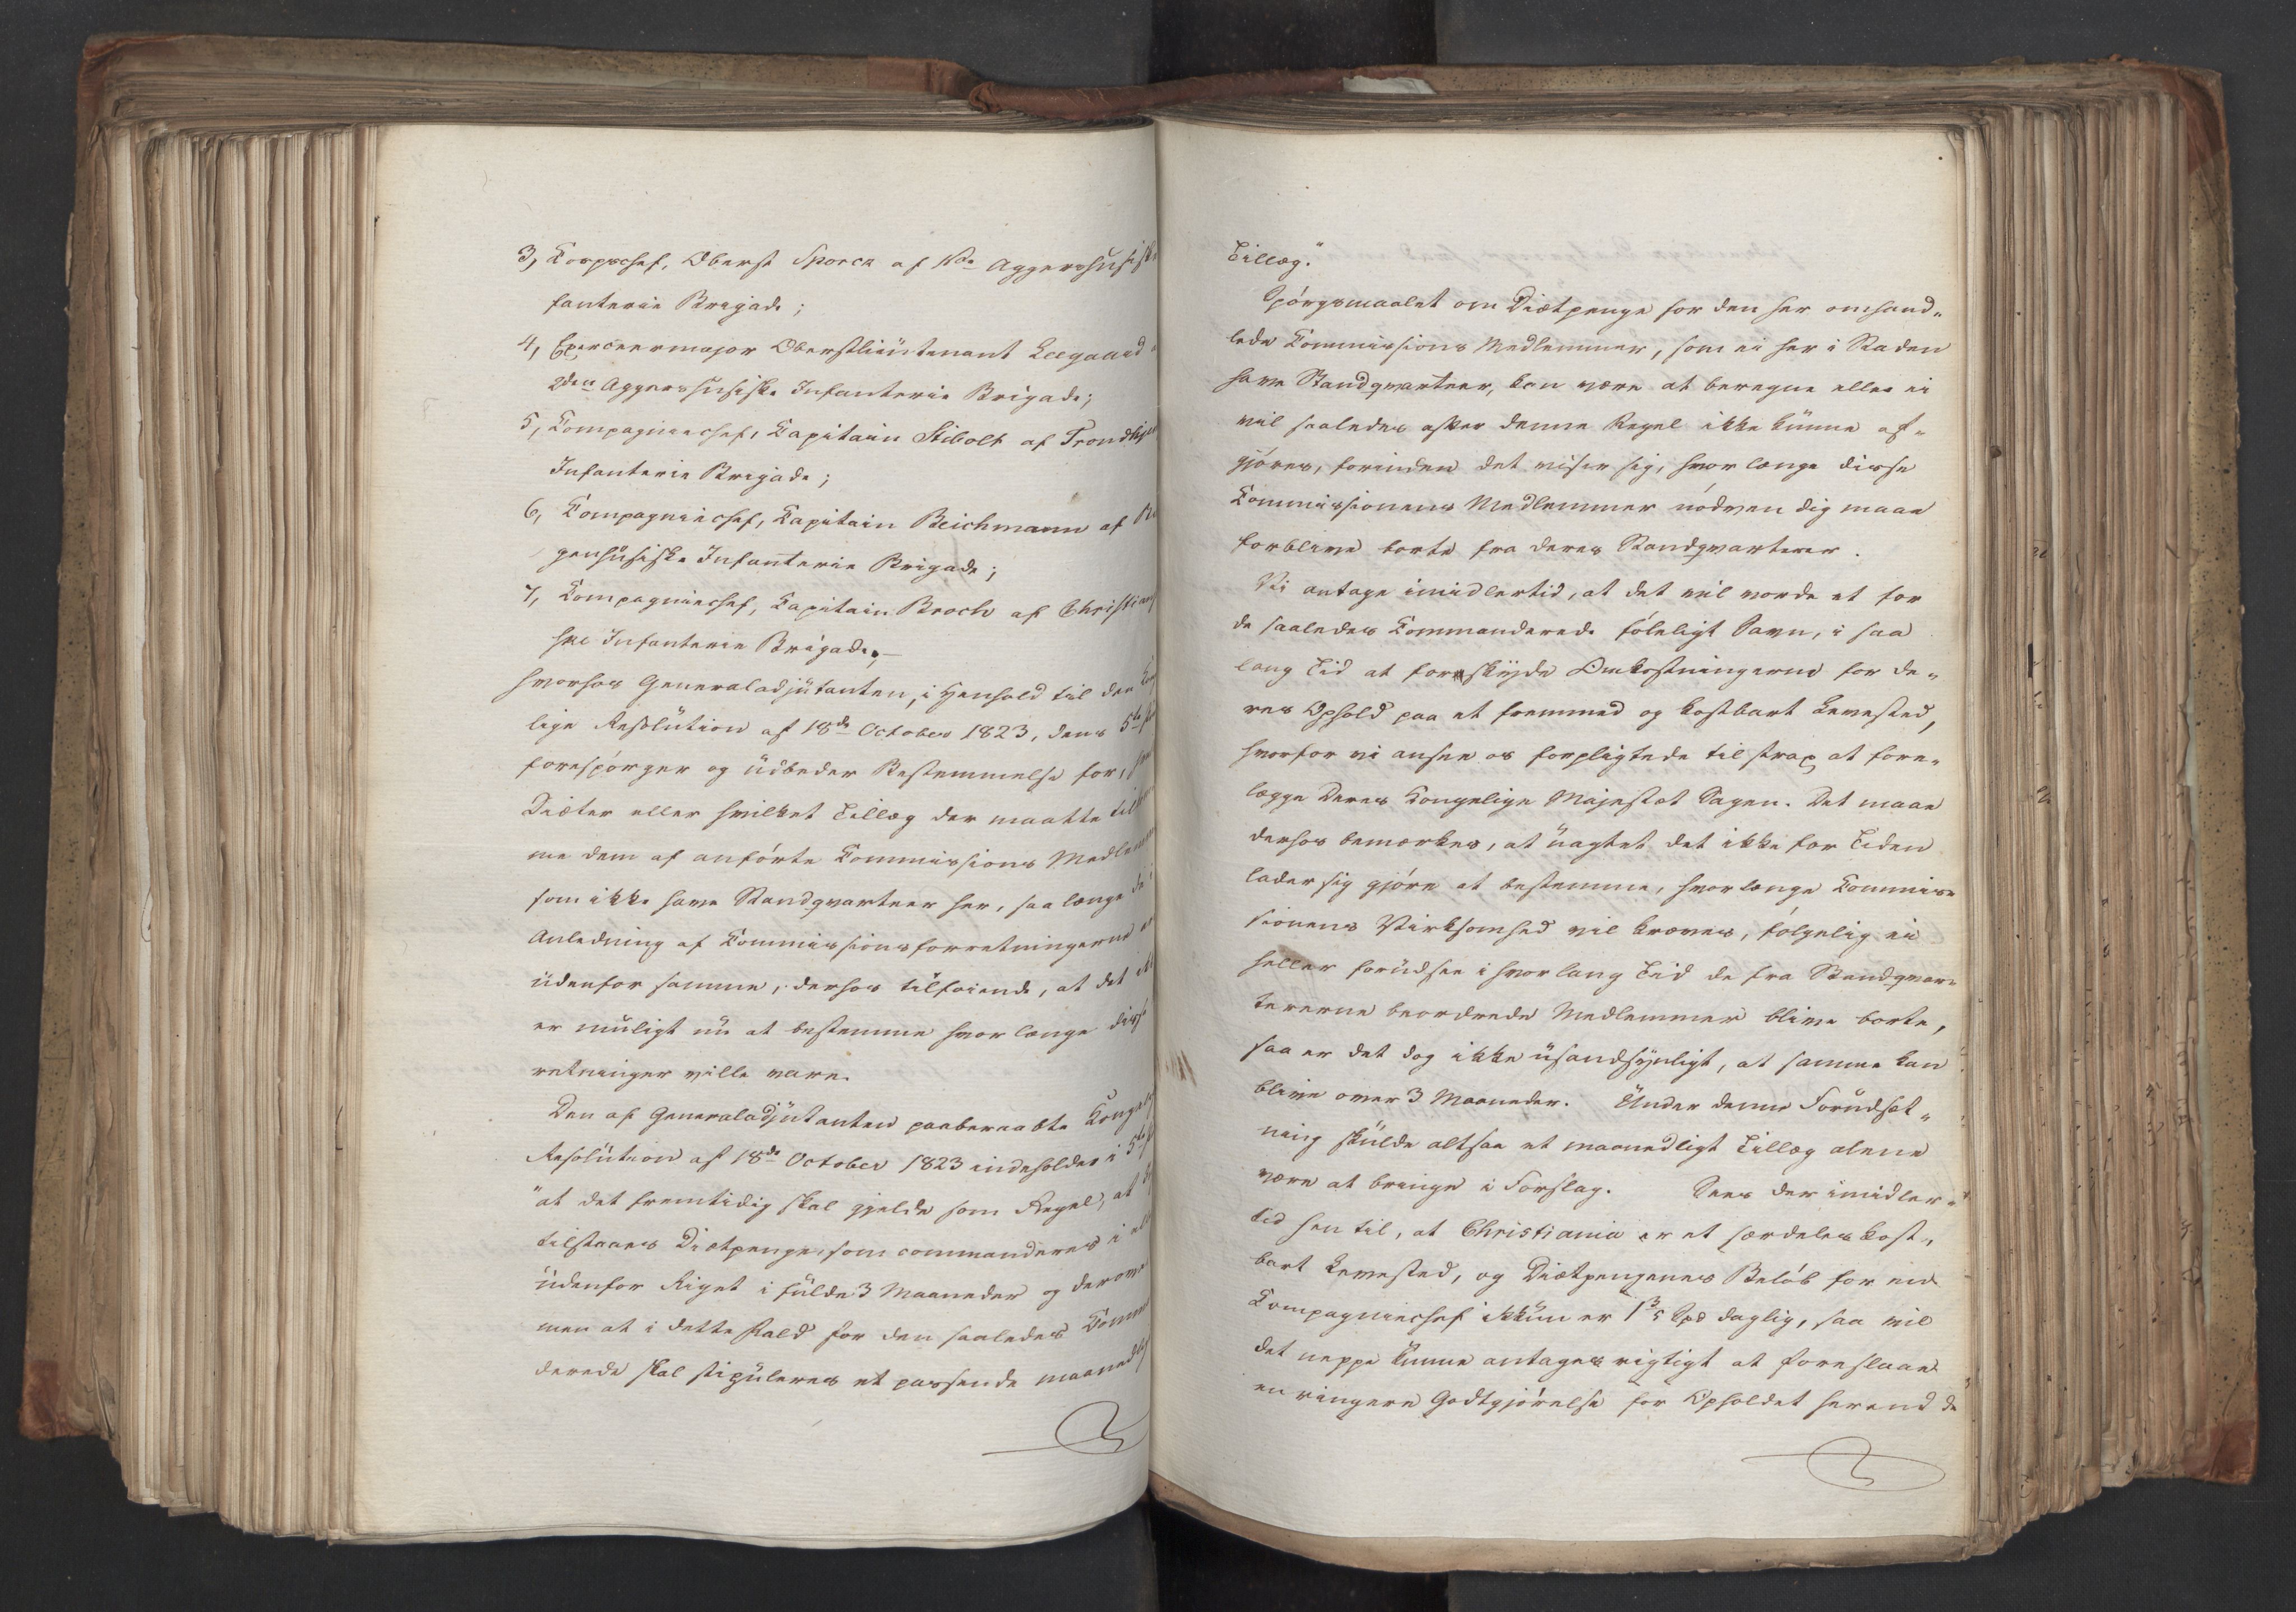 3, Corpschef, Oberst Sporck af 1ste Aggershusiske
fanterie Brigade;
4, Exerceermajor Oberstlieutenant Leegaard
2den Aggershusiske Infanterie Brigade;
5, Compagniechef, Capitain Stibolt af Trondhje
Infanterie Brigade;
6, Compagniechef, Capitain Beichmann af
genhusiske Infanterie Brigade;
7, Compagniechef, Capitain Broch af Christian
ske Infanterie Brigade,—
hvorhos Generaladjutanten, i Henhold til den Kon
lige Resolution af 18de October 1823, dens 5te
forespørger og udbeder Bestemmelse for,
Diæter eller hvilket Tillæg der maatte til
me dem af anførte Commissions Medlemm
som ikke have Standqvarteer her, saa længe de i
Anledning af Commissionsforretningerne er
udenfor samme, derhos tilføiende, at det ei
er muligt nu at bestemme hvor længe disse
retninger ville vare.
Den af Generaladjutanten paaberaabte Kongel
Resolution af 18de October 1823 indeholder i 5te
"at det fremtidig skal gjelde som Regel, at
tilstaaes Diætpenge, som commanderes i el
udenfor Riget i fulde 3 Maaneder og derove
men at i dette Fald for den saaledes Comm
derede skal stipuleres et passende maanedlig
Tillæg."
Spørgsmaalet om Diætpenge for den her omhand-
lede Commissions Medlemmer, som ei her i Staden
have Standqvarteer, kan være at beregne eller ei
vil saaledes efter denne Regel ikke kunne af-
gjøres, forinden det viser sig, hvor længe disse
Commissionens Medlemmer nødvendig maae
forblive borte fra deres Standqvarterer.
Vi antage imidlertid, at det vil vorde et for
de saaledes Commanderede føleligt Savn, i saa
lang Tid at forskyde Omkostningerne for de-
res Ophold paa et fremmed og kostbart Levested,
hvorfor vi ansee os forpligtede til strax at fore-
lægge Deres Kongelige Majestæt Sagen. Det maae
derhos bemærkes, at uagtet det ikke for Tiden
lader sig gjøre at bestemme, hvorlænge Commis-
sionens Virksomhed vil kræves, følgelig ei
heller forudsee i hvor lang Tid de fra Standqvar-
tererne beordrede Medlemmer blive borte,
saa er det dog ikke usandsynligt, at samme kan
blive over 3 Maaneder. Under denne Forudsæt-
ning skulde altsaa et maanedligt Tillæg alene
være at bringe i Forslag. Sees der imidler-
tid hen til, at Christiania er et særdeles kost-
bart Levested, og Diætpengenes Beløb for en
Compagniechef ikkun er 1 3/5 Spd daglig, saa vil
det neppe kunne antages rigtigt at foreslaae
en ringere Godtgjørelse for Opholdet her end de